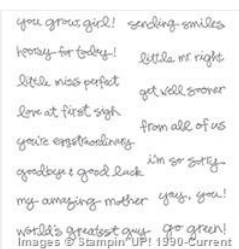 you grow, girl!
sending smiles
hooray for today!
little mr. right
little miss perfect
get well sooner
love at first sigh
from all of us
you're eggstraordinary
i'm so sorry...
goodbye & good luck
my amazing mother
yay, you!
world's greatest guy
go green!
Images © Stampin' UP! 1990-Current